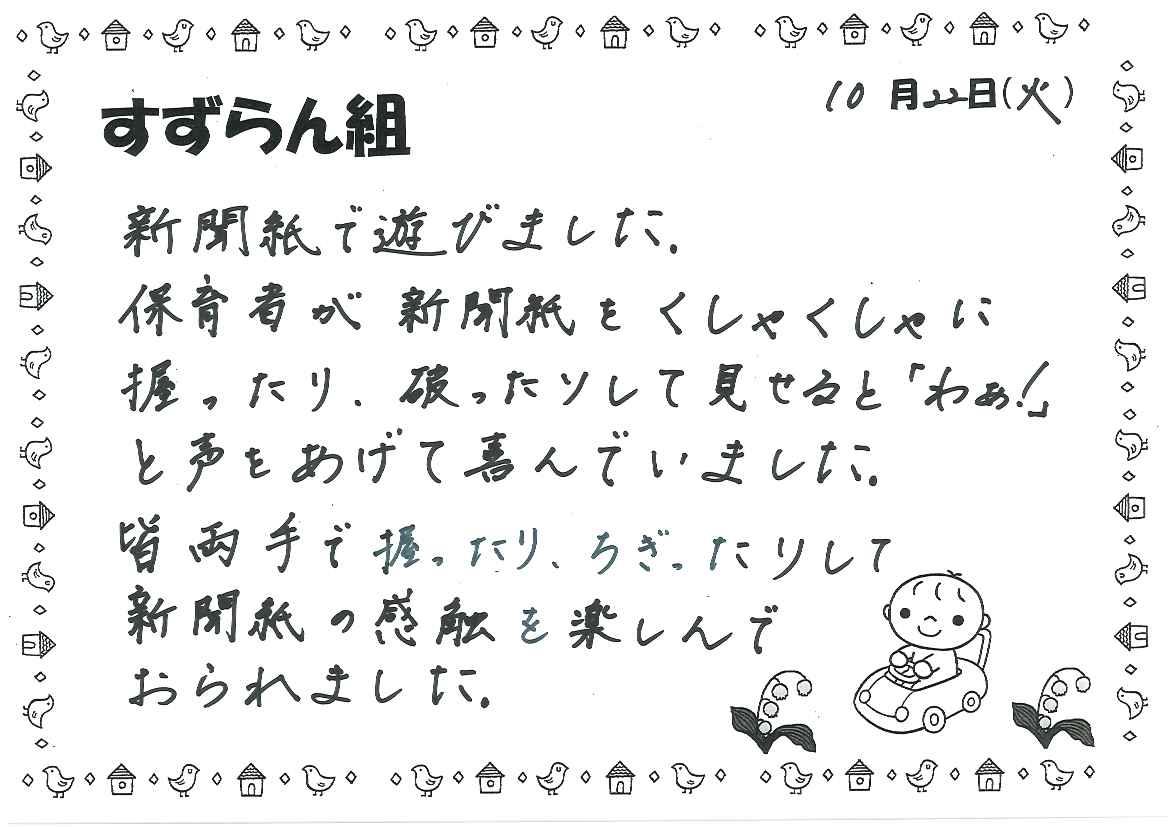 すずらん組
10月22日(火)
新聞紙で遊びました。
保育者が新聞紙をくしゃくしゃに
握ったり、破ったりして見せると「わぁ!」
と声をあげて喜んでいました。
皆両手で握ったり、ちぎったりして
新聞紙の感触を楽しんで
おられました。